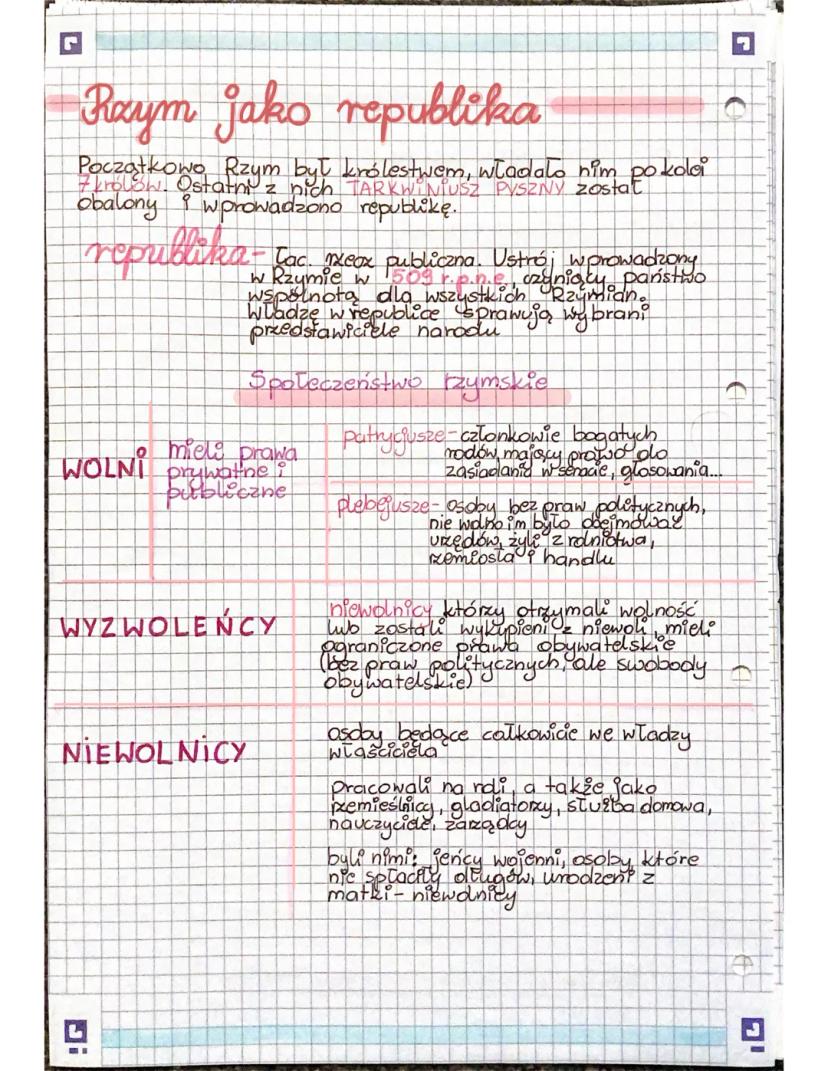 Rzym jako republika
Początkowo Rzym był królestwem, władało nim po kolei
7 królów. Ostatni z nich TARKWINIUSZ PYSZNY został
obalony i wprowadzono republikę.
republika - łac. rzecz publiczna. Ustrój wprowadzony
w Rzymie w 509 r.p.n.e, czyniący państwo
wspólnotą dla wszystkich Rzymian.
Władzę w republice sprawują wybrani
przedstawiciele narodu
Społeczeństwo rzymskie
WOLNI
mieli prawa
prywatne i
publiczne
patrycjusze - członkowie bogatych
rodów, mający prawo do
zasiadania w senacie, głosowania...
plebejusze - osoby bez praw politycznych,
nie wolno im było obejmować
urzędów, żyli z rolnictwa,
rzemiosła i handlu
WYZWOLEŃCY
niewolnicy którzy otrzymali wolność
lub zostali wykupieni z niewoli, mieli
ograniczone prawa obywatelskie
(bez praw politycznych, ale swobody
obywatelskie)
NIEWOLNICY
osoby będące całkowicie we władzy
właściciela
pracowali na roli, a także jako
rzemieślnicy, gladiatorzy, służba domowa,
nauczyciele, zarządcy
byli nimi: jeńcy wojenni, osoby, które
nie spłaciły długów, urodzeni z
matki - niewolnicy